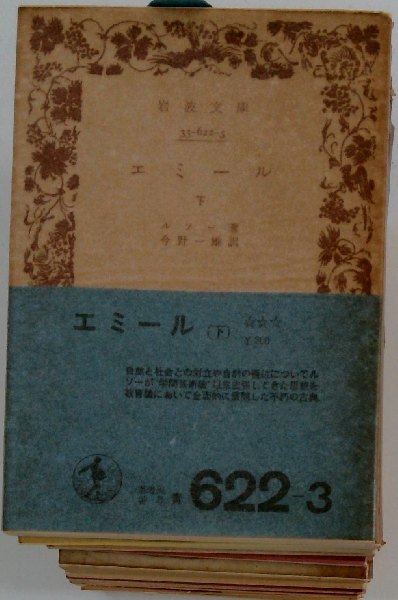 岩波文庫
33-622-3
エミール
下
ルソー著
今野一雄訳
エミール(下) ☆☆☆
¥200
自然と社会との対立や自然の優位についてル
ソーが「学問芸術論」以来主張してきた思想を
教育論において全面的に展開した不朽の古典
青 622-3